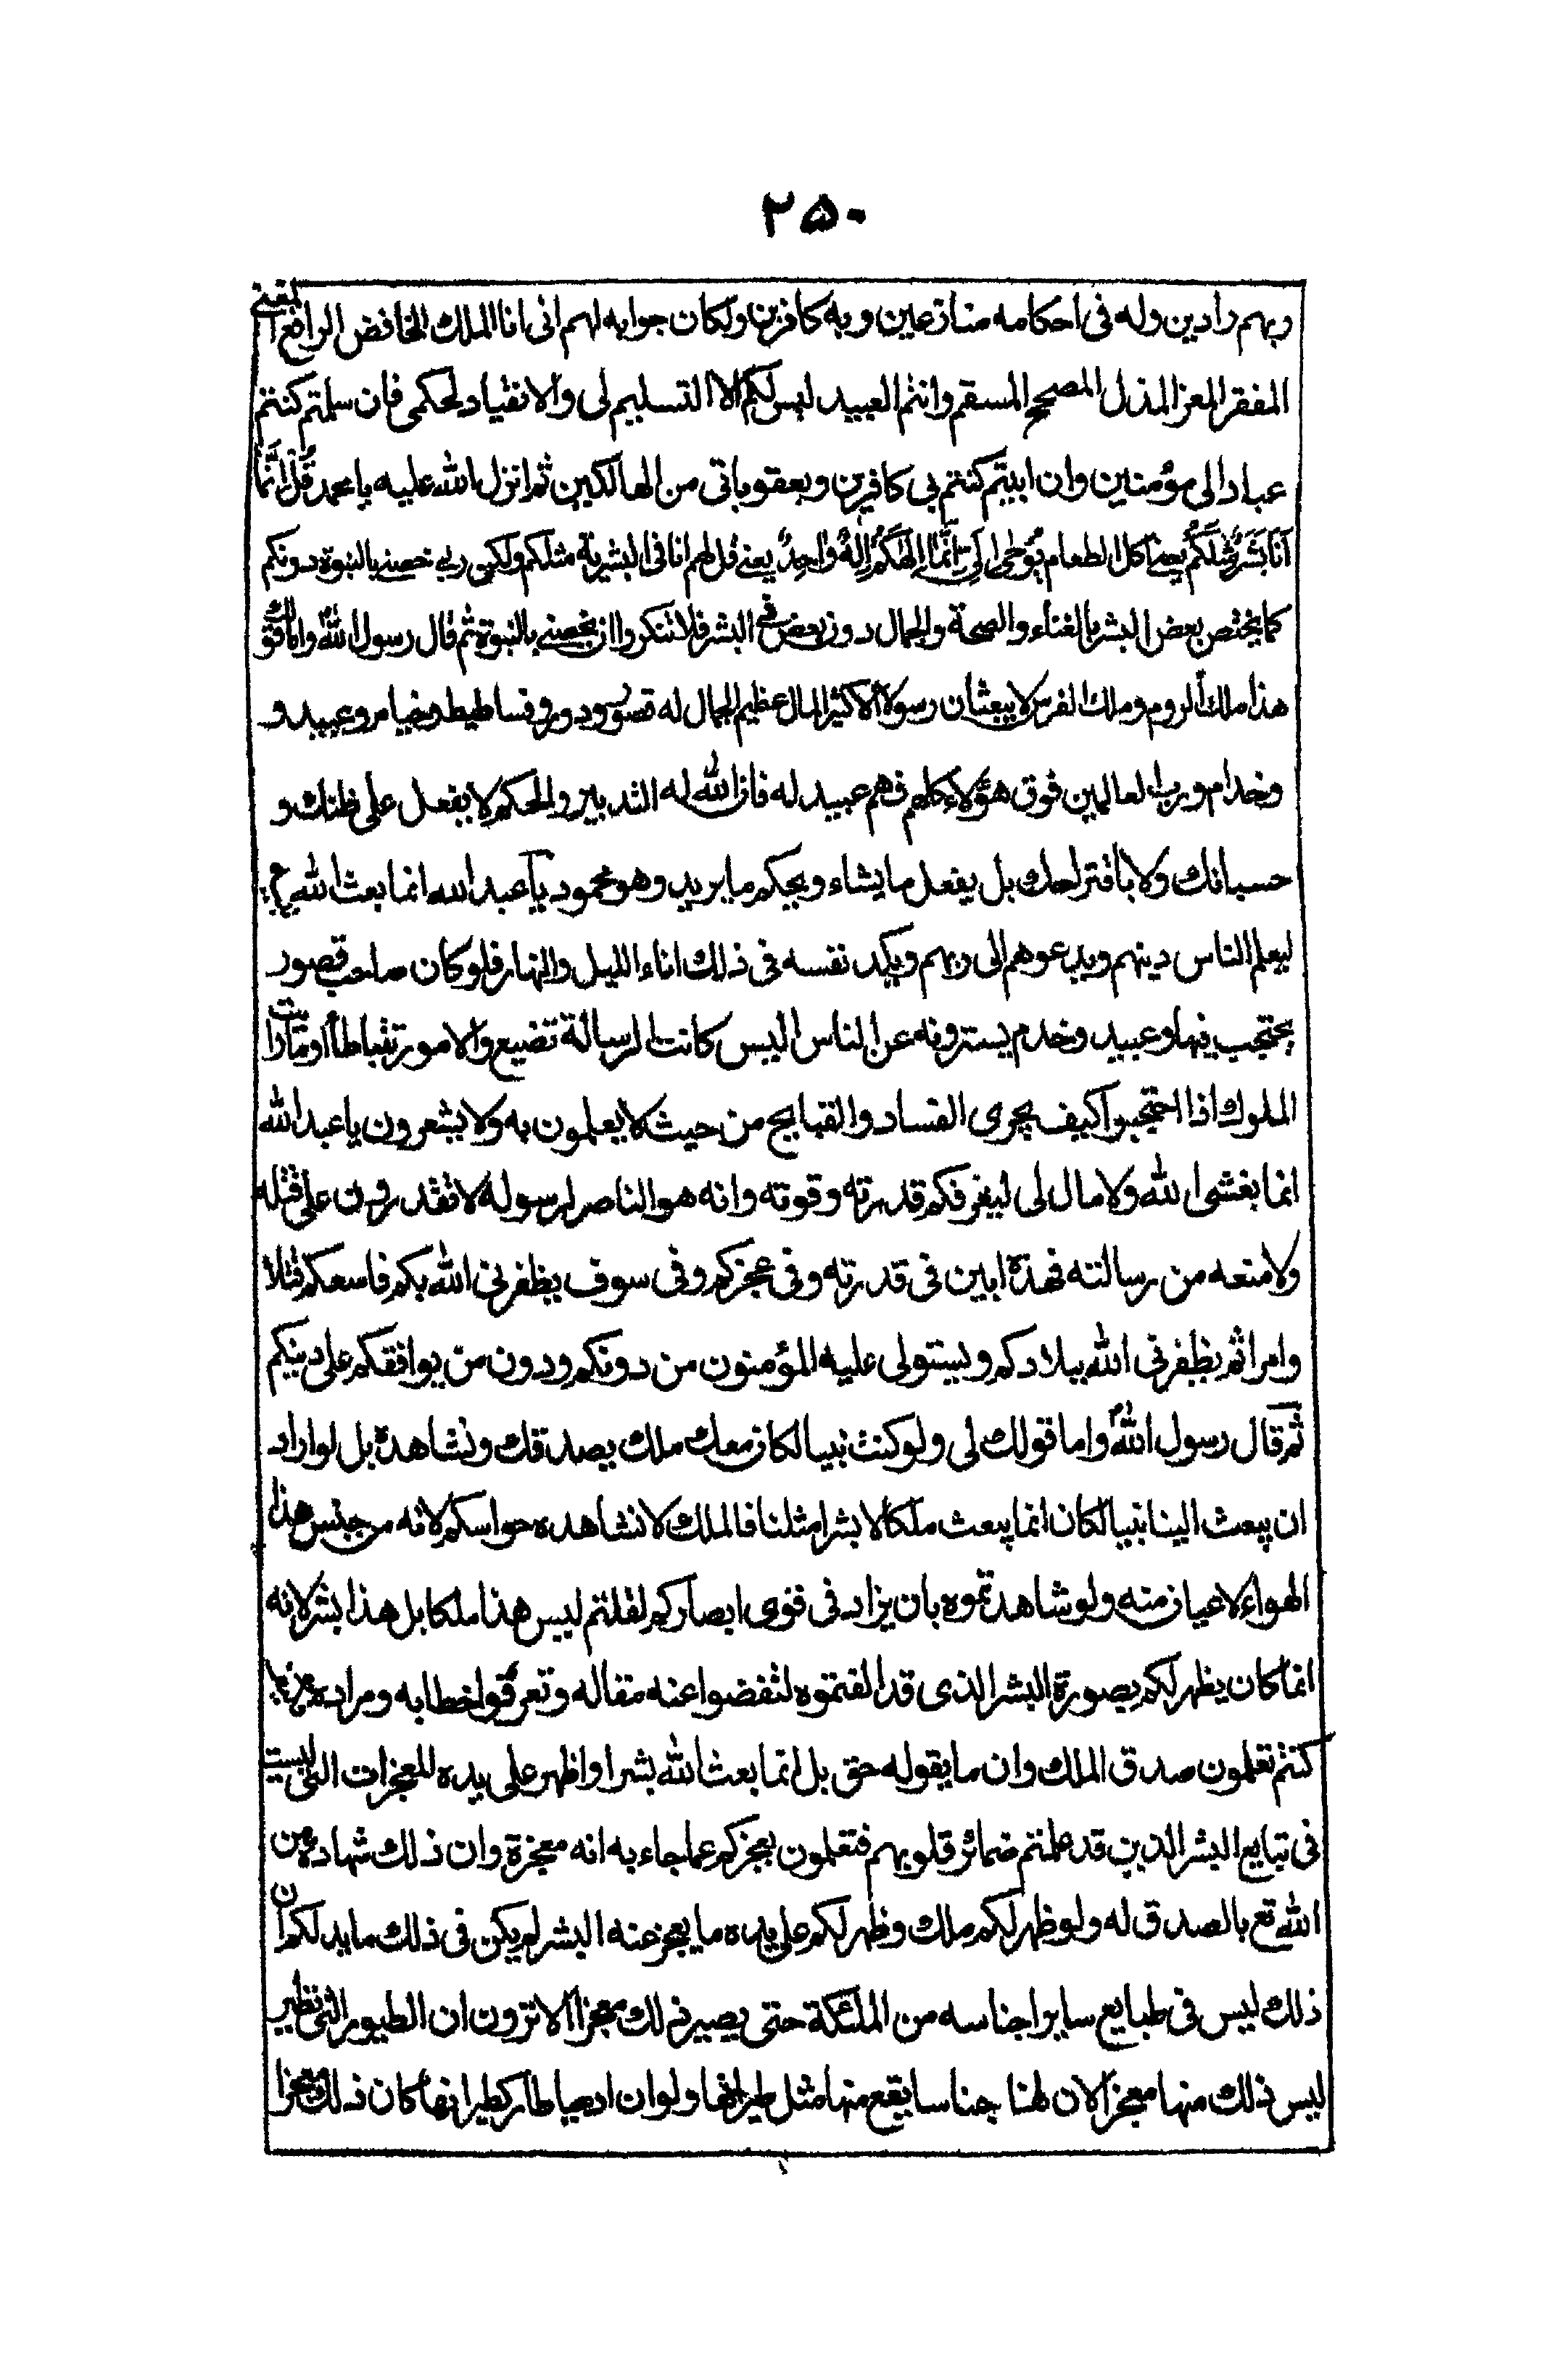 ۲۵۰
ربهم رادين وله فى احكامه منازعين وبه كافرين ولكان جوابه لهم انى انا الملك الخافض الرافع المغنى
المفقر المعز المذل المصحح المسقم وانتم العبيد ليس لكم الا التسليم لى والانقياد لحكمى فان سلمتم كنتم
عبادا لى مؤمنين وان ابيتم كنتم بى كافرين وبعقوباتى من الهالكين ثم انزل الله عليه يا محمد قُلْ اِنَّما
اَنَا بَشَرٌ مِثْلُكُمْ يعنى اكل الطعام يُوحى اِلَىَّ اَنَّما اِلهُكُمْ اِلهٌ واحِدٌ يعنى قل لهم انا فى البشرية مثلكم ولكن ربى خصنى بالنبوة دونكم
كما يختص بعض البشر بالغناء والصحة والجمال دون بعض من البشر فلا تنكروا ان يخصنى بالنبوة ثم قال رسول الله واما قولك
هذا ملك الروم وملك الفرس لا يبعثان رسولا الا كثير المال عظيم الجمال له قصور ودور وفساطيط وخيام وعبيد و
وخدام ورب العالمين فوق هؤلاء كلهم فهم عبيد له فان الله له التدبير والحكم لا يفعل على ظنك و
حسبانك ولا باقتراحك بل يفعل ما يشاء ويحكم ما يريد وهو محمود يا عبد الله انما بعث الله
ليعلم الناس دينهم ويدعوهم الى ربهم ويكد نفسه فى ذلك اناء الليل والنهار فلو كان صاحب قصور
يحتجب فيها وعبيد وخدم يسترونه عن الناس اليس كانت الرسالة تضيع والامور تتباطأ او ما رايت
الملوك اذا احتجبوا كيف يجرى الفساد والقبايح من حيث لا يعلمون به ولا يشعرون يا عبد الله
انما بعثنى الله ولا مال لى ليعرفكم قدرته وقوته وانه هو الناصر لرسوله لا تقدرون على قتله
ولا منعه من رسالته فهذه ابين فى قدرته وفى عجزكم وفى سوف يظفرنى الله بكم فاسعكم قتلا
واسرا ثم يظفرنى الله ببلادكم ويستولى عليه المؤمنون من دونكم ودون من يوافقكم على دينكم
ثم قال رسول الله واما قولك لى ولو كنت نبيا لكان معك ملك يصدقك ونشاهده بل لو اراد
ان يبعث الينا نبيا لكان انما يبعث ملكا لا بشرا مثلنا فالملك لا تشاهده حواسكم لانه من جنس هذا
الهواء لا عيان منه ولو شاهدتموه بان يزاد فى قوى ابصاركم لقلتم ليس هذا ملكا بل هذا بشر لانه
انما كان يظهر لكم بصورة البشر الذى قد الفتموه لتفضوا عنه مقاله وتعرفوا خطابه ومراده
كنتم تعلمون صدق الملك وان ما يقوله حق بل انما بعث الله بشرا واظهر على يده المعجزات التى ليست
فى تبايع البشر الذين قد علمتم ضمائر قلوبهم فتعلمون بعجزكم عما جاء به انه معجزة وان ذلك شهادة من
الله تع بالصدق له ولو ظهر لكم ملك وظهر لكم على يده ما يعجز عنه البشر لم يكن فى ذلك ما يدلكم ان
ذلك ليس فى طبايع ساير اجناسه من الملئكة حتى يصير ذلك معجزا الا ترون ان الطيور التى تطير
ليس ذلك منها معجزا لان لها اجناسا يقع منها مثل طيرانها ولو ان ادميا طار كطيرانها كان ذلك معجزا